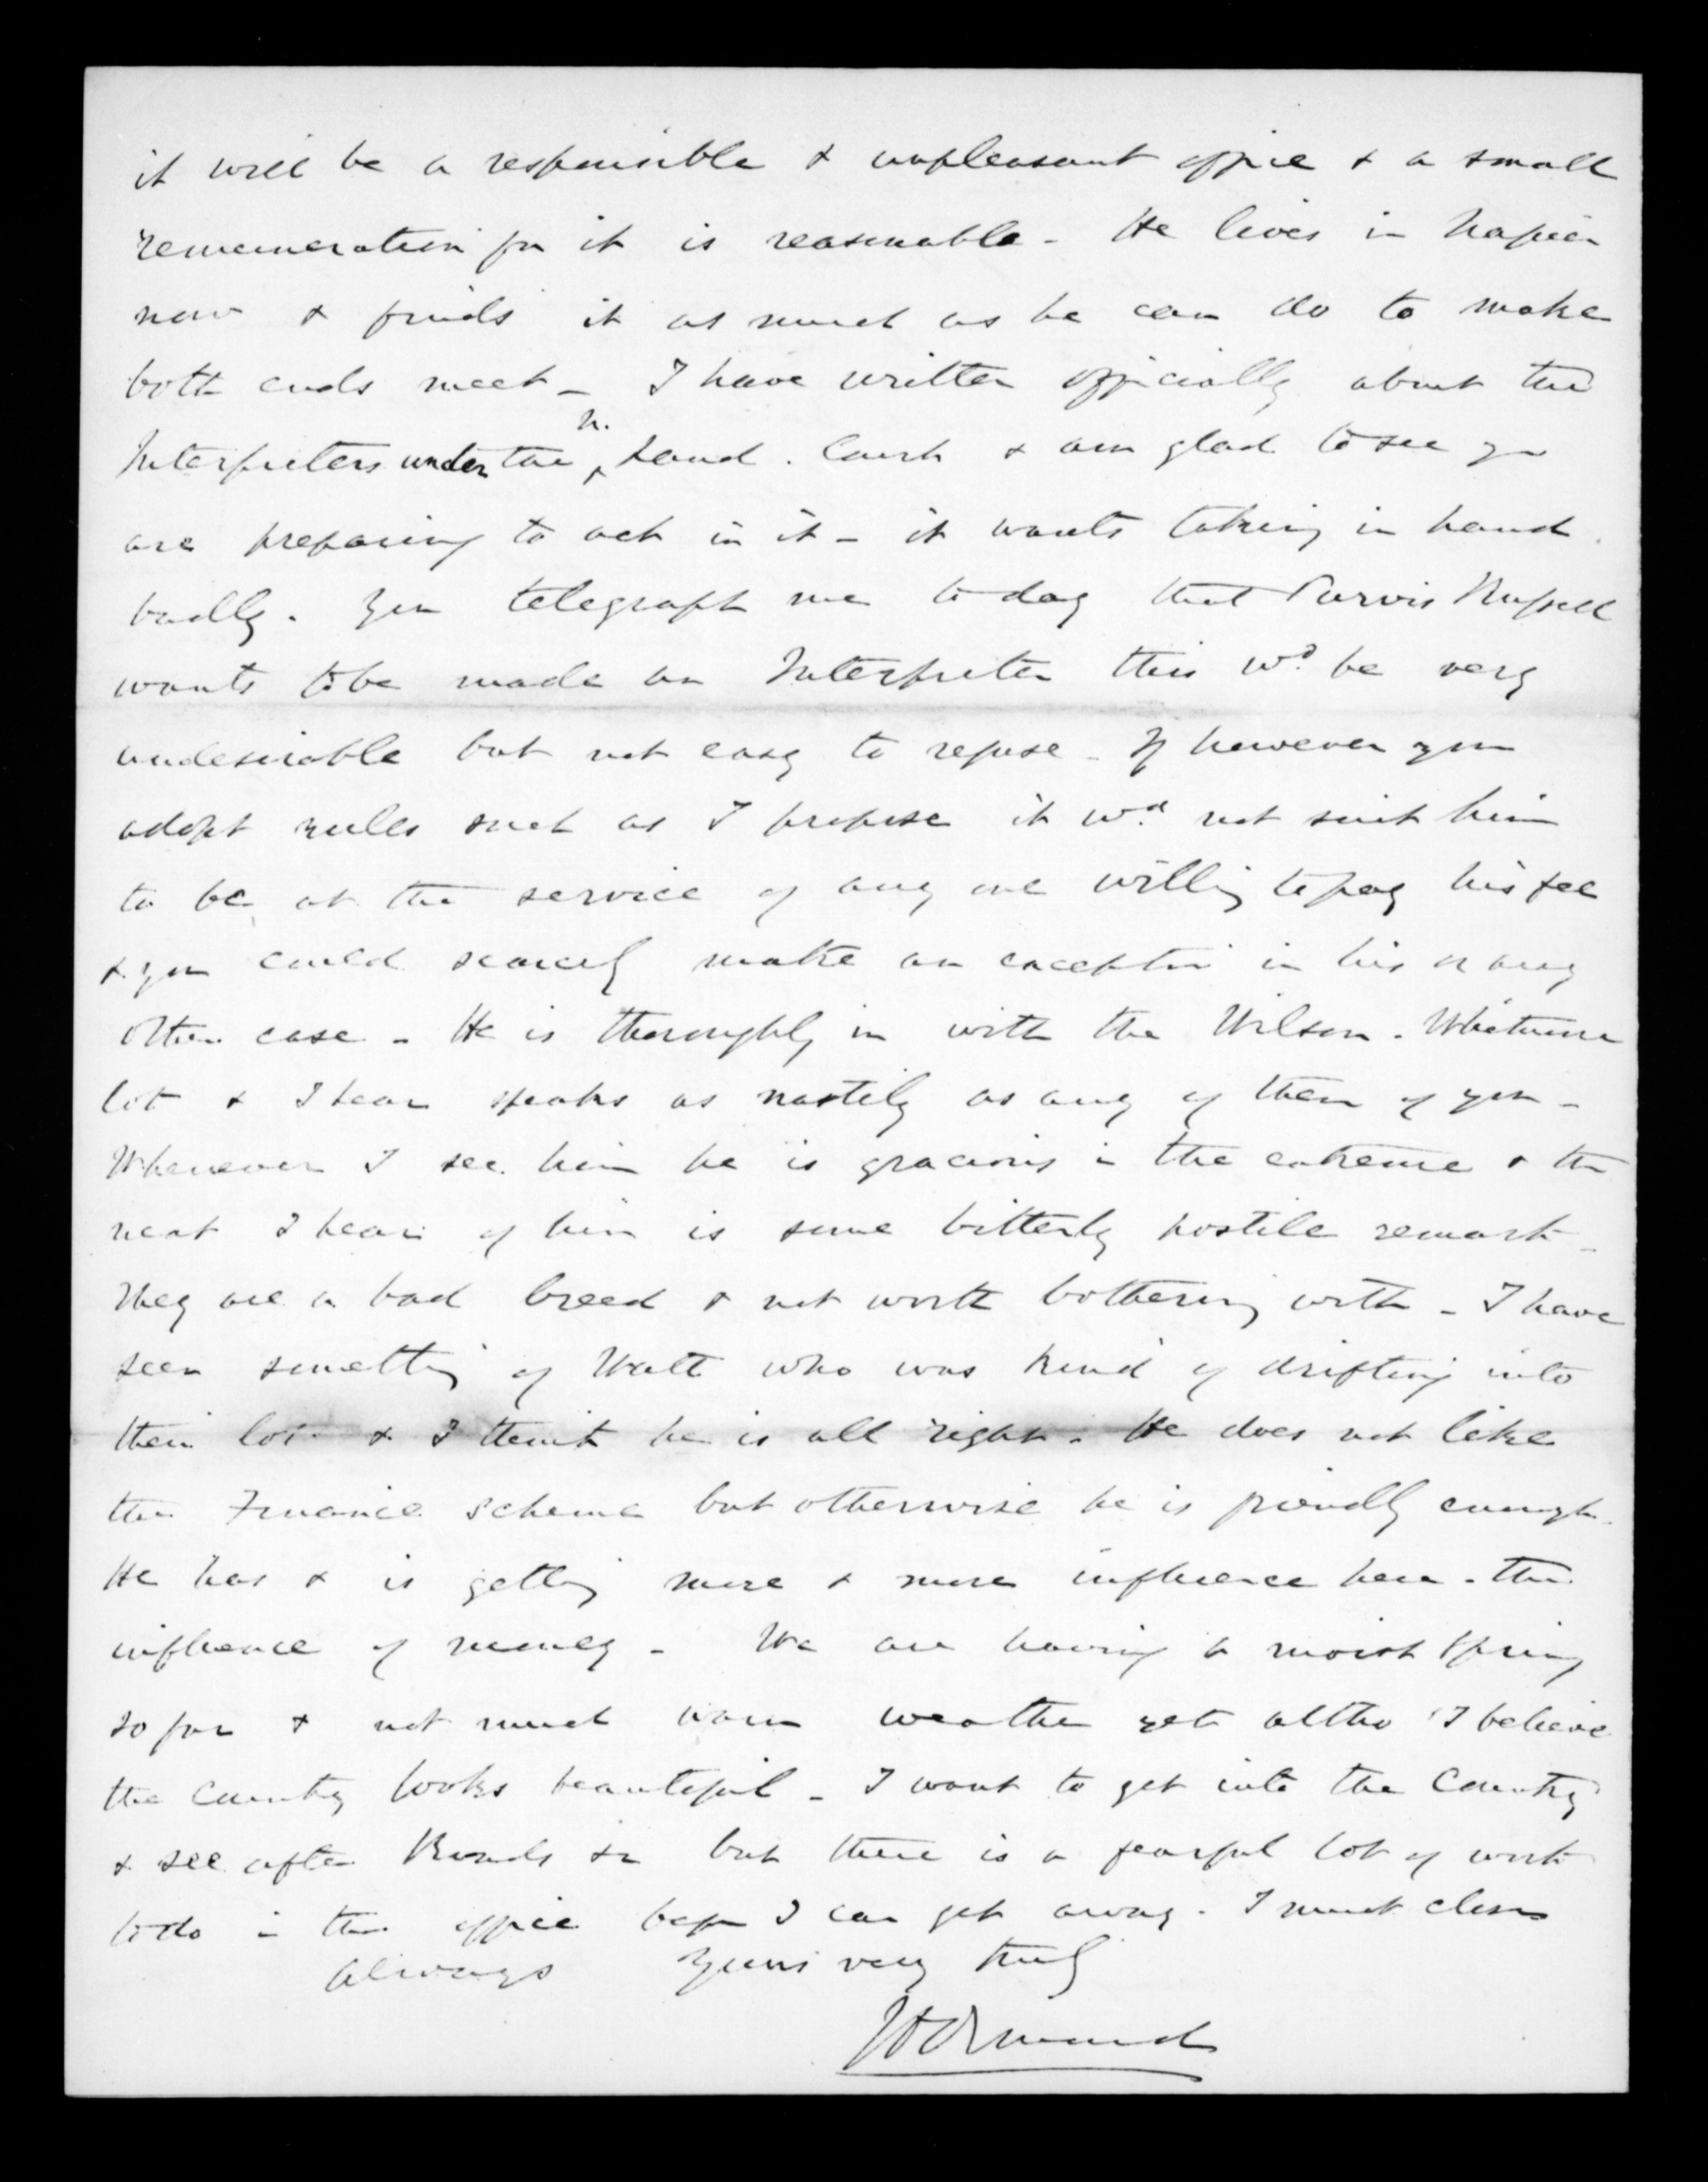 it will be a responsible & unpleasant office & a small
remuneration for it is reasonable - He lives in Napier
now & finds it as much as he can do to make
both ends meet - I have written officially about the
Interpreters under the N. Land. Court & am glad to see you
are preparing to act in it - it wants taking in hand
badly. You telegraph me to day that Purvis Russell
wants to be made an Interpreter this wd. be very
undesirable but not easy to refuse - If however you
adopt rules such as I propose it wd. not suit him
to be at the service of any one willing to pay his fee
& you could scarcely make an exception in his or any
other case - He is thoroughly in with the Wilson - Whitmore
lot & I hear speaks as nastily as any of them of you -
Whenever I see him he is gracious in the extreme & the
next I hear of him is some bitterly hostile remark -
They are a bad breed & not worth bothering with - I have
seen something of Watt who was kind of drifting into
their lot & I think he is all right. He does not like
the Finance scheme but otherwise he is friendly enough.
He has & is getting more & more influence here - the
influence of money - We are having a moist spring
so far & not much warm weather yet altho' I believe
the country looks beautiful - I want to get into the Country
& see after Roads &c but there is a fearful lot of work
to do in the office before I can get away. I must close
Always Yours very truly
JD Ormond